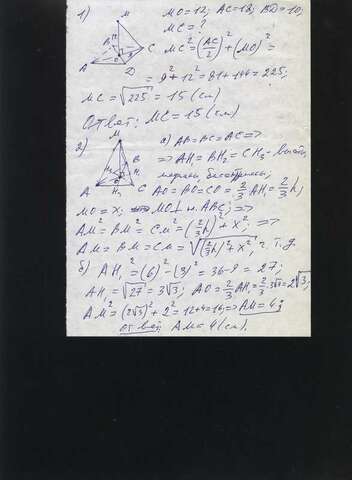 1) MO=12; AC=18; BD=10;
MC=?
MC²=(AC/2)²+(MO)²=
=9²+12²=81+144=225;
MC=√225=15 (см)
Ответ: MC=15 (см)
2) а) AB=BC=AC=>
=> AH₁=BH₂=CH₃-высоты,
медианы, биссектрисы;
AO=BO=CO=2/3 AH₁=2/3 h,
MO=x; MO⊥ п. ABC; =>
AM²=BM²=CM²=(2/3 h)²+x²; =>
AM=BM=CM=√(2/3 h)²+x², ч. т. д.
б) AH₁²=(6)²-(3)²=36-9=27;
AH₁=√27=3√3; AO=2/3 AH₁=2/3·3√3=2√3;
AM²=(2√3)²+2²=12+4=16;=>AM=4;
ответ: AM=4 (см).
M
B
H
A
O
C
D
M
B
H₂
H₃
O
A
H₁
C